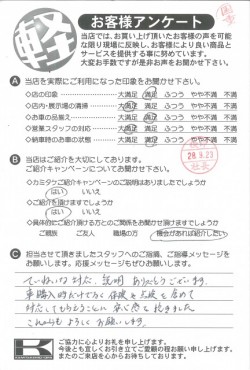 軽
お客様アンケート
当店では、お買い上げ頂いたお客様の声を可能
な限り現場に反映し、お客様により良い商品と
サービスを提供する事に努めています。
大変お手数ですが是非お声をお聞かせ下さい。
A 当店を実際にご利用になった印象をお聞かせ下さい。
○店の印象 大満足 満足 ふつう やや不満 不満
○店内・展示場の清掃 大満足 満足 ふつう やや不満 不満
○お車の品揃え 大満足 満足 ふつう やや不満 不満
○営業スタッフの対応 大満足 満足 ふつう やや不満 不満
○納車時のお車の状態 大満足 満足 ふつう やや不満 不満
28.9.29
B 当店はご紹介を大切にしてあります。
ご紹介キャンペーンについてお聞かせ下さい。
○カミタケご紹介キャンペーンのご説明はありましたでしょうか
はい いいえ
○ご紹介を頂けますでしょうか
はい いいえ
○具体的にご紹介頂ける方とのご関係をお聞かせ頂けますでしょうか
ご親族 ご友人 職場の方 機会があれば紹介したい
C 担当させて頂きましたスタッフへのご指摘、ご指導メッセージを
お願いします。応援メッセージもぜひお願いします。
ていねいな対応、説明 ありがとうございます。
車購入時だけでなく 保険も点検を含めて
対応してもらうごとに 安心感を抱きました
これからも よろしく お願いします。
K
ご協力に心よりお礼を申し上げます。
今後とも宜しくお引き立てご愛顧の程お願い申し上げます。
またのご来店を心からお待ちしております。